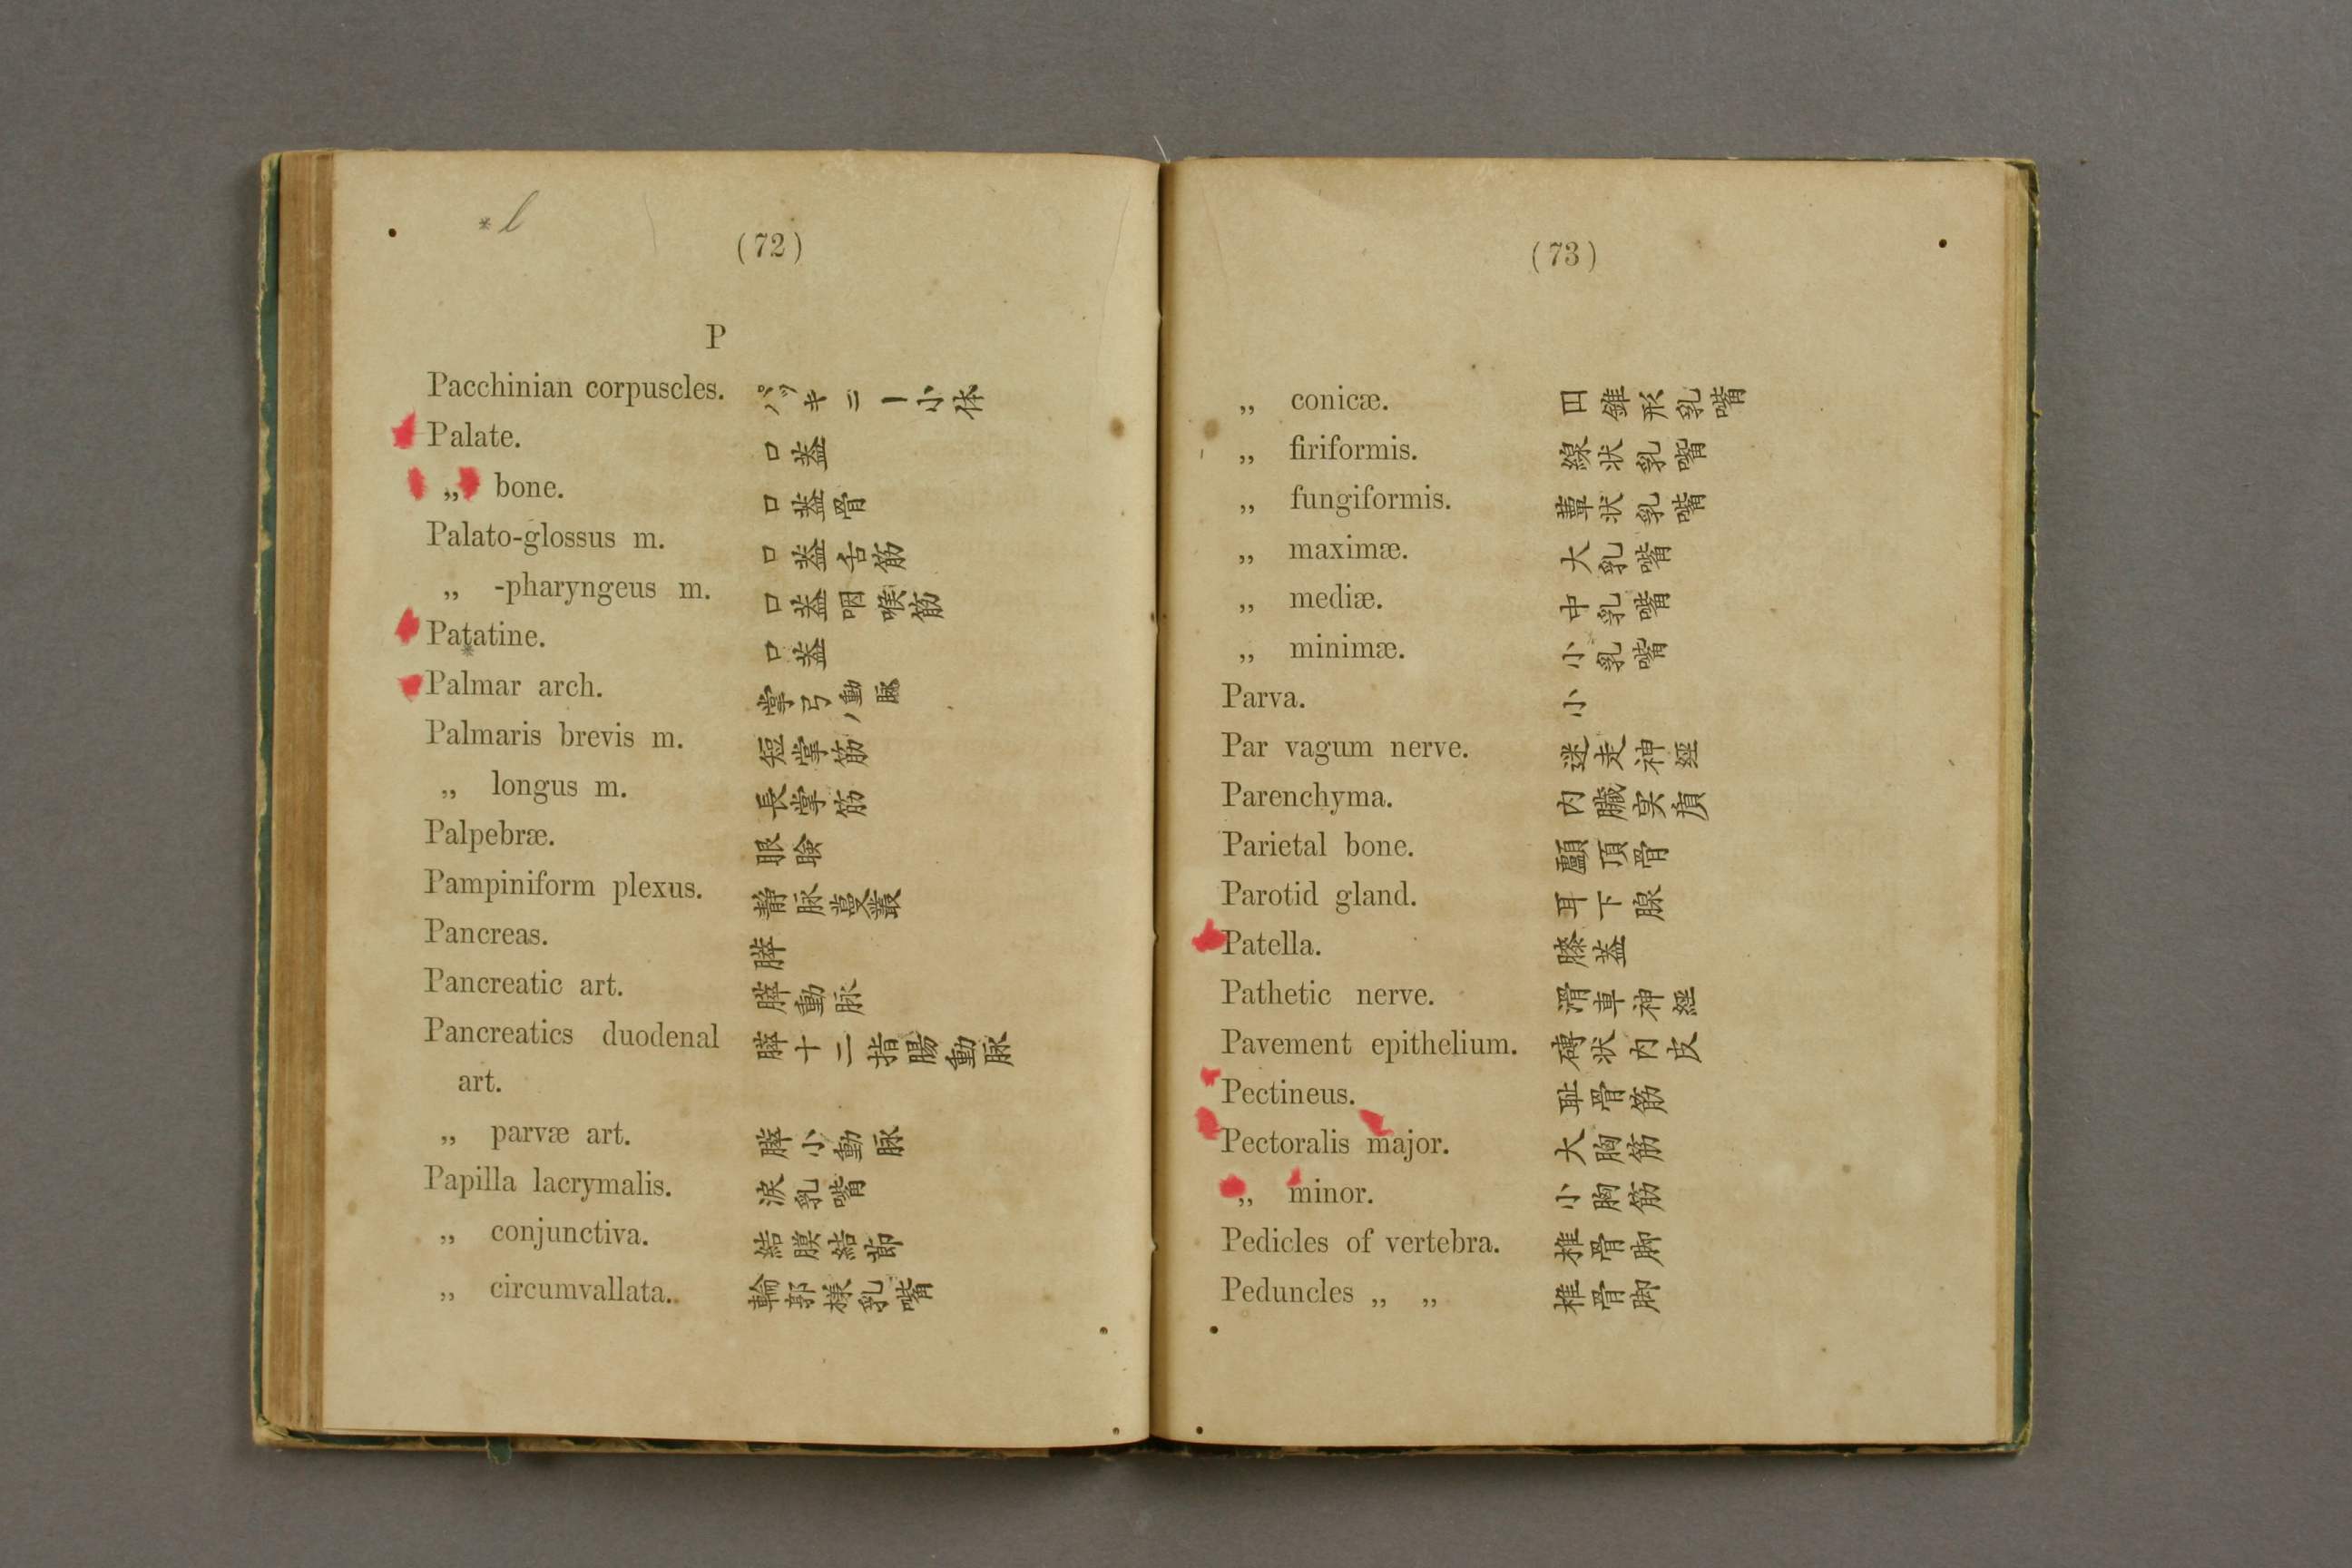 *l
(72)
P
Pacchinian corpuscles. パッキニー小体
Palate. 口蓋
„ bone. 口蓋骨
Palato-glossus m. 口蓋舌筋
„ -pharyngeus m. 口蓋咽喉筋
Patatine. 口蓋
*
Palmar arch. 掌弓ノ動脈
Palmaris brevis m. 短掌筋
„ longus m. 長掌筋
Palpebræ. 眼瞼
Pampiniform plexus. 静脉蔓叢
Pancreas. 膵
Pancreatic art. 膵動脉
Pancreatics duodenal 膵十二指腸動脉
art.
„ parvæ art. 膵小動脉
Papilla lacrymalis. 涙乳嘴
„ conjunctiva. 結膜結節
„ circumvallata. 輪郭様乳嘴
(73)
„ conicæ. 円錐形乳嘴
„ firiformis. 線状乳嘴
„ fungiformis. 蕈状乳嘴
„ maximæ. 大乳嘴
„ mediæ. 中乳嘴
„ minimæ. 小乳嘴
Parva. 小
Par vagum nerve. 迷走神経
Parenchyma. 内臓実質
Parietal bone. 顱頂骨
Parotid gland. 耳下腺
Patella. 膝蓋
Pathetic nerve. 滑車神経
Pavement epithelium. 磚状内皮
Pectineus. 耻骨筋
Pectoralis major. 大胸筋
„ minor. 小胸筋
Pedicles of vertebra. 椎骨脚
Peduncles „ „ 椎骨脚